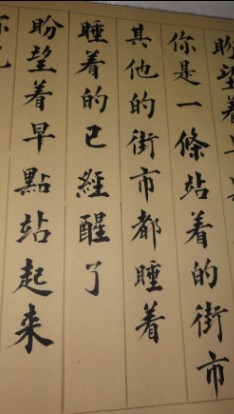 盼望着早
你是一條站着的街市
其他的街市都睡着
睡着的已經醒了
盼望着早點站起来